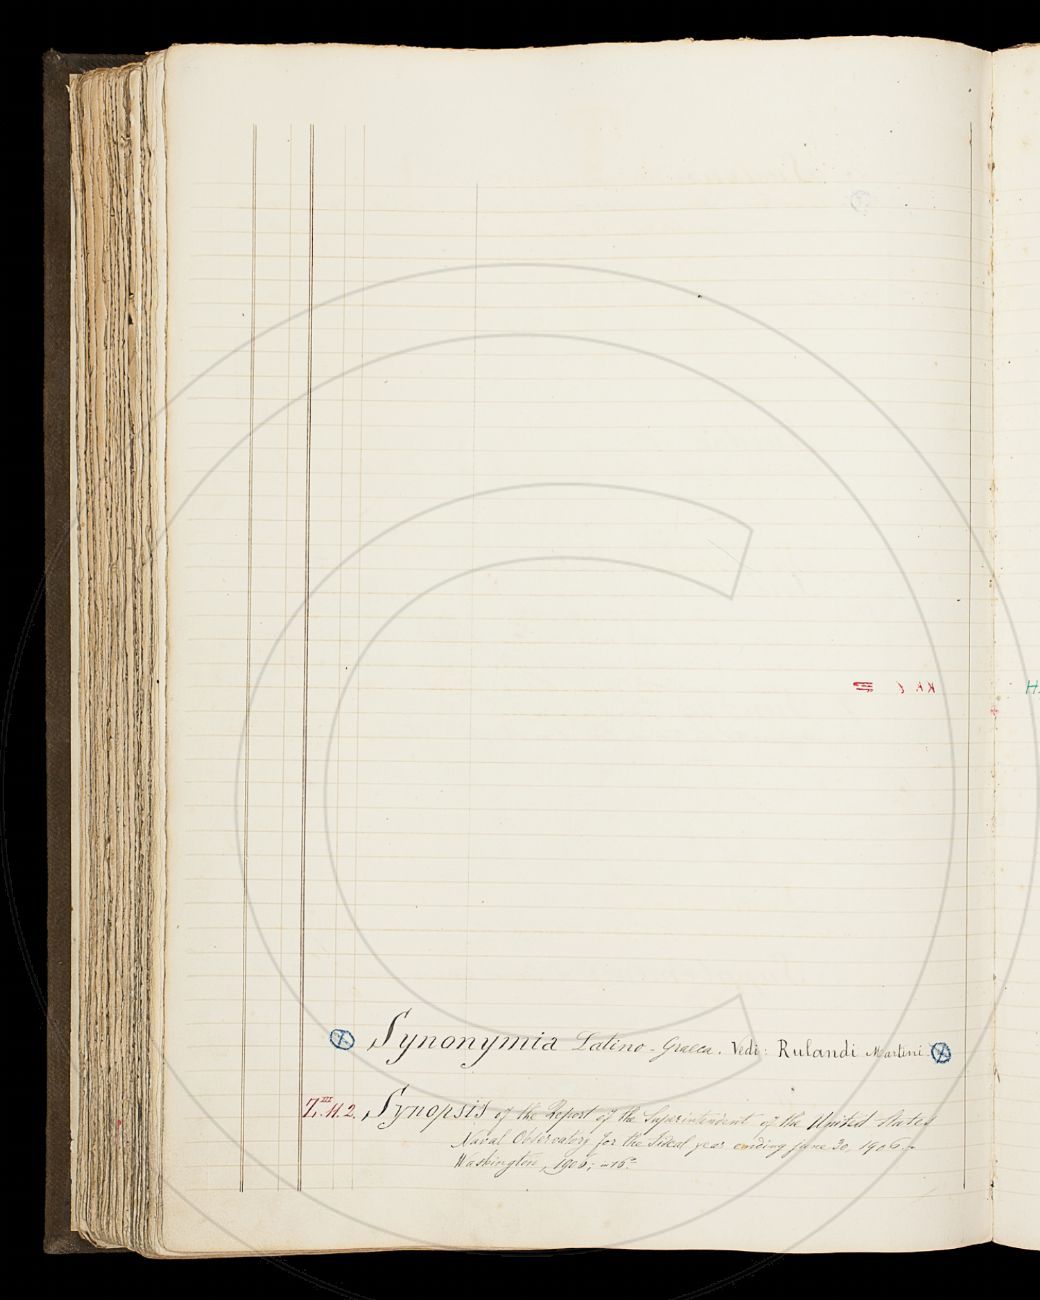 Synonymia Latino-Graeca. Vedi: Rulandi Martini
Z.III H. 2. Synopsis of the Report of the Superintendent of the United States
Naval Observatory for the Fiscal year ending June 30, 1906.-
Washington, 1906; in 16°